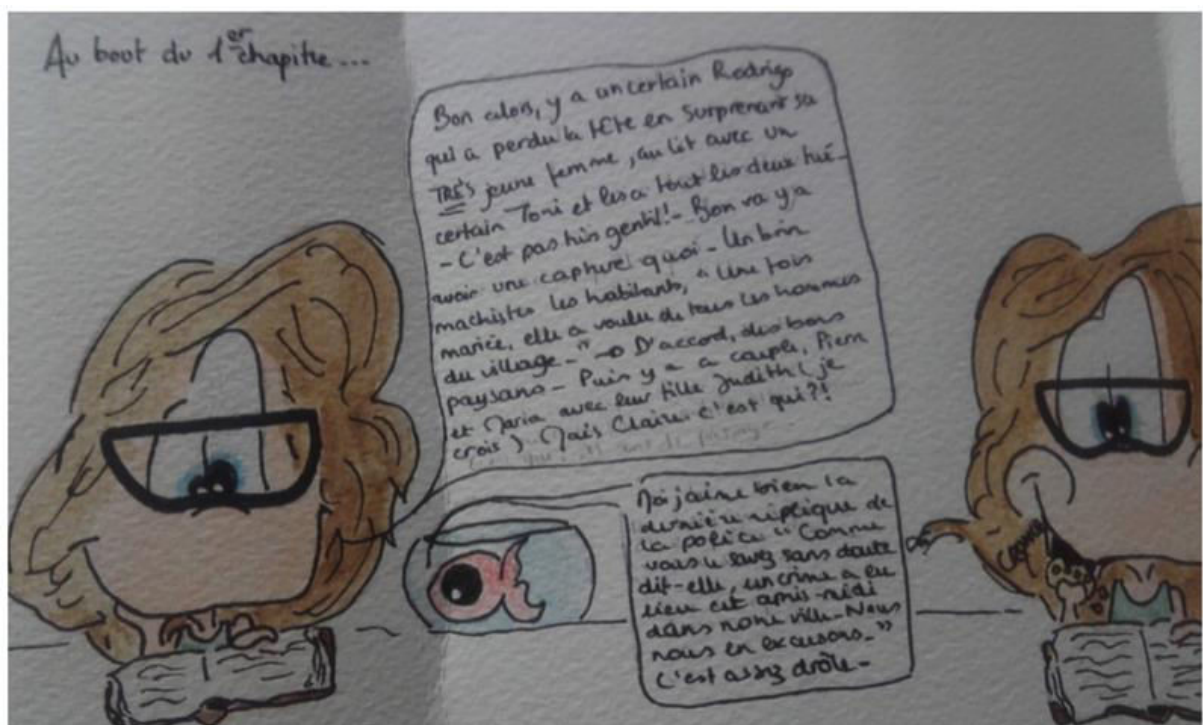 Au bout du 1er chapitre...
Bon alors, y a un certain Rodrigo
qui a perdu la tête en surprenant sa
TRÈS jeune femme, au lit avec un
certain Toni et les a tout les deux tué_
- C'est pas très gentil! - Bon va y a
avoir une capture quoi - Un brin
machistes les habitants, "Une fois
mariée, elle a voulu de tous les hommes
du village -" → D'accord, des bons
paysans - Puis y a a couple, Pierre
et Maria avec leur fille Judith (je
crois) Mais Claire c'est qui?!
Moi j'aime bien la
dernière réplique de
la police "Comme
vous le savez sans doute
dit-elle, un crime a eu
lieu cet après-midi
dans notre ville_Nous
nous en excusons_"
C'est assez drôle -